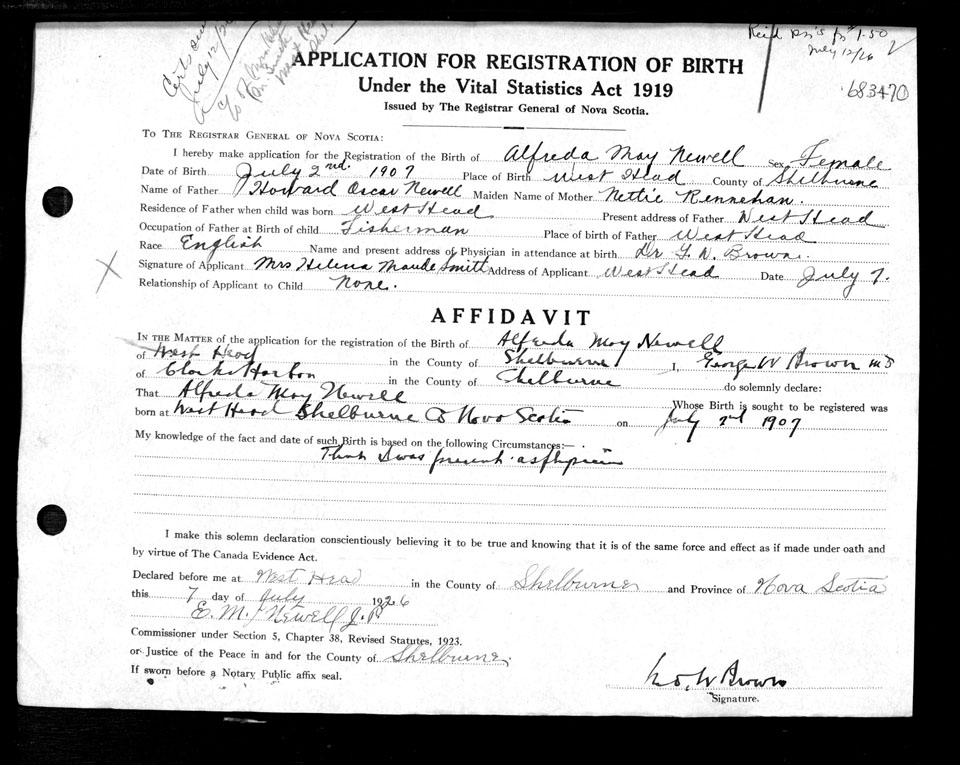 July 12/26
Rec'd for $1.50
July 12/26
683470
APPLICATION FOR REGISTRATION OF BIRTH
Under the Vital Statistics Act 1919
Issued by The Registrar General of Nova Scotia.
To The Registrar General of Nova Scotia:
I hereby make application for the Registration of the Birth of Alfreda May Newell Sex Female
Date of Birth July 2nd. 1907 Place of Birth West Head County of Shelburne
Name of Father Howard Oscar Newell Maiden Name of Mother Nettie Rennehan.
Residence of Father when child was born West Head Present address of Father West Head
Occupation of Father at Birth of child Fisherman Place of birth of Father West Head
Race English Name and present address of Physician in attendance at birth Dr G. W. Brown.
Signature of Applicant Mrs Helena Maude Smith Address of Applicant West Head Date July 7.
Relationship of Applicant to Child None.
AFFIDAVIT
In the Matter of the application for the registration of the Birth of Alfreda May Newell
of West Head in the County of Shelburne I, George W Brown M D
of Clarks Harbor in the County of Shelburne do solemnly declare:
That Alfreda May Newell Whose Birth is sought to be registered was
born at West Head Shelburne Co Nova Scotia on July 2nd 1907
My knowledge of the fact and date of such Birth is based on the following Circumstances:—
That I was present as physician
I make this solemn declaration conscientiously believing it to be true and knowing that it is of the same force and effect as if made under oath and
by virtue of The Canada Evidence Act.
Declared before me at West Head in the County of Shelburne and Province of Nova Scotia
this 7 day of July 1926
E. M. Newell J. P.
Commissioner under Section 5, Chapter 38, Revised Statutes, 1923.
or Justice of the Peace in and for the County of Shelburne.
If sworn before a Notary Public affix seal.
Geo. W Brown
Signature.